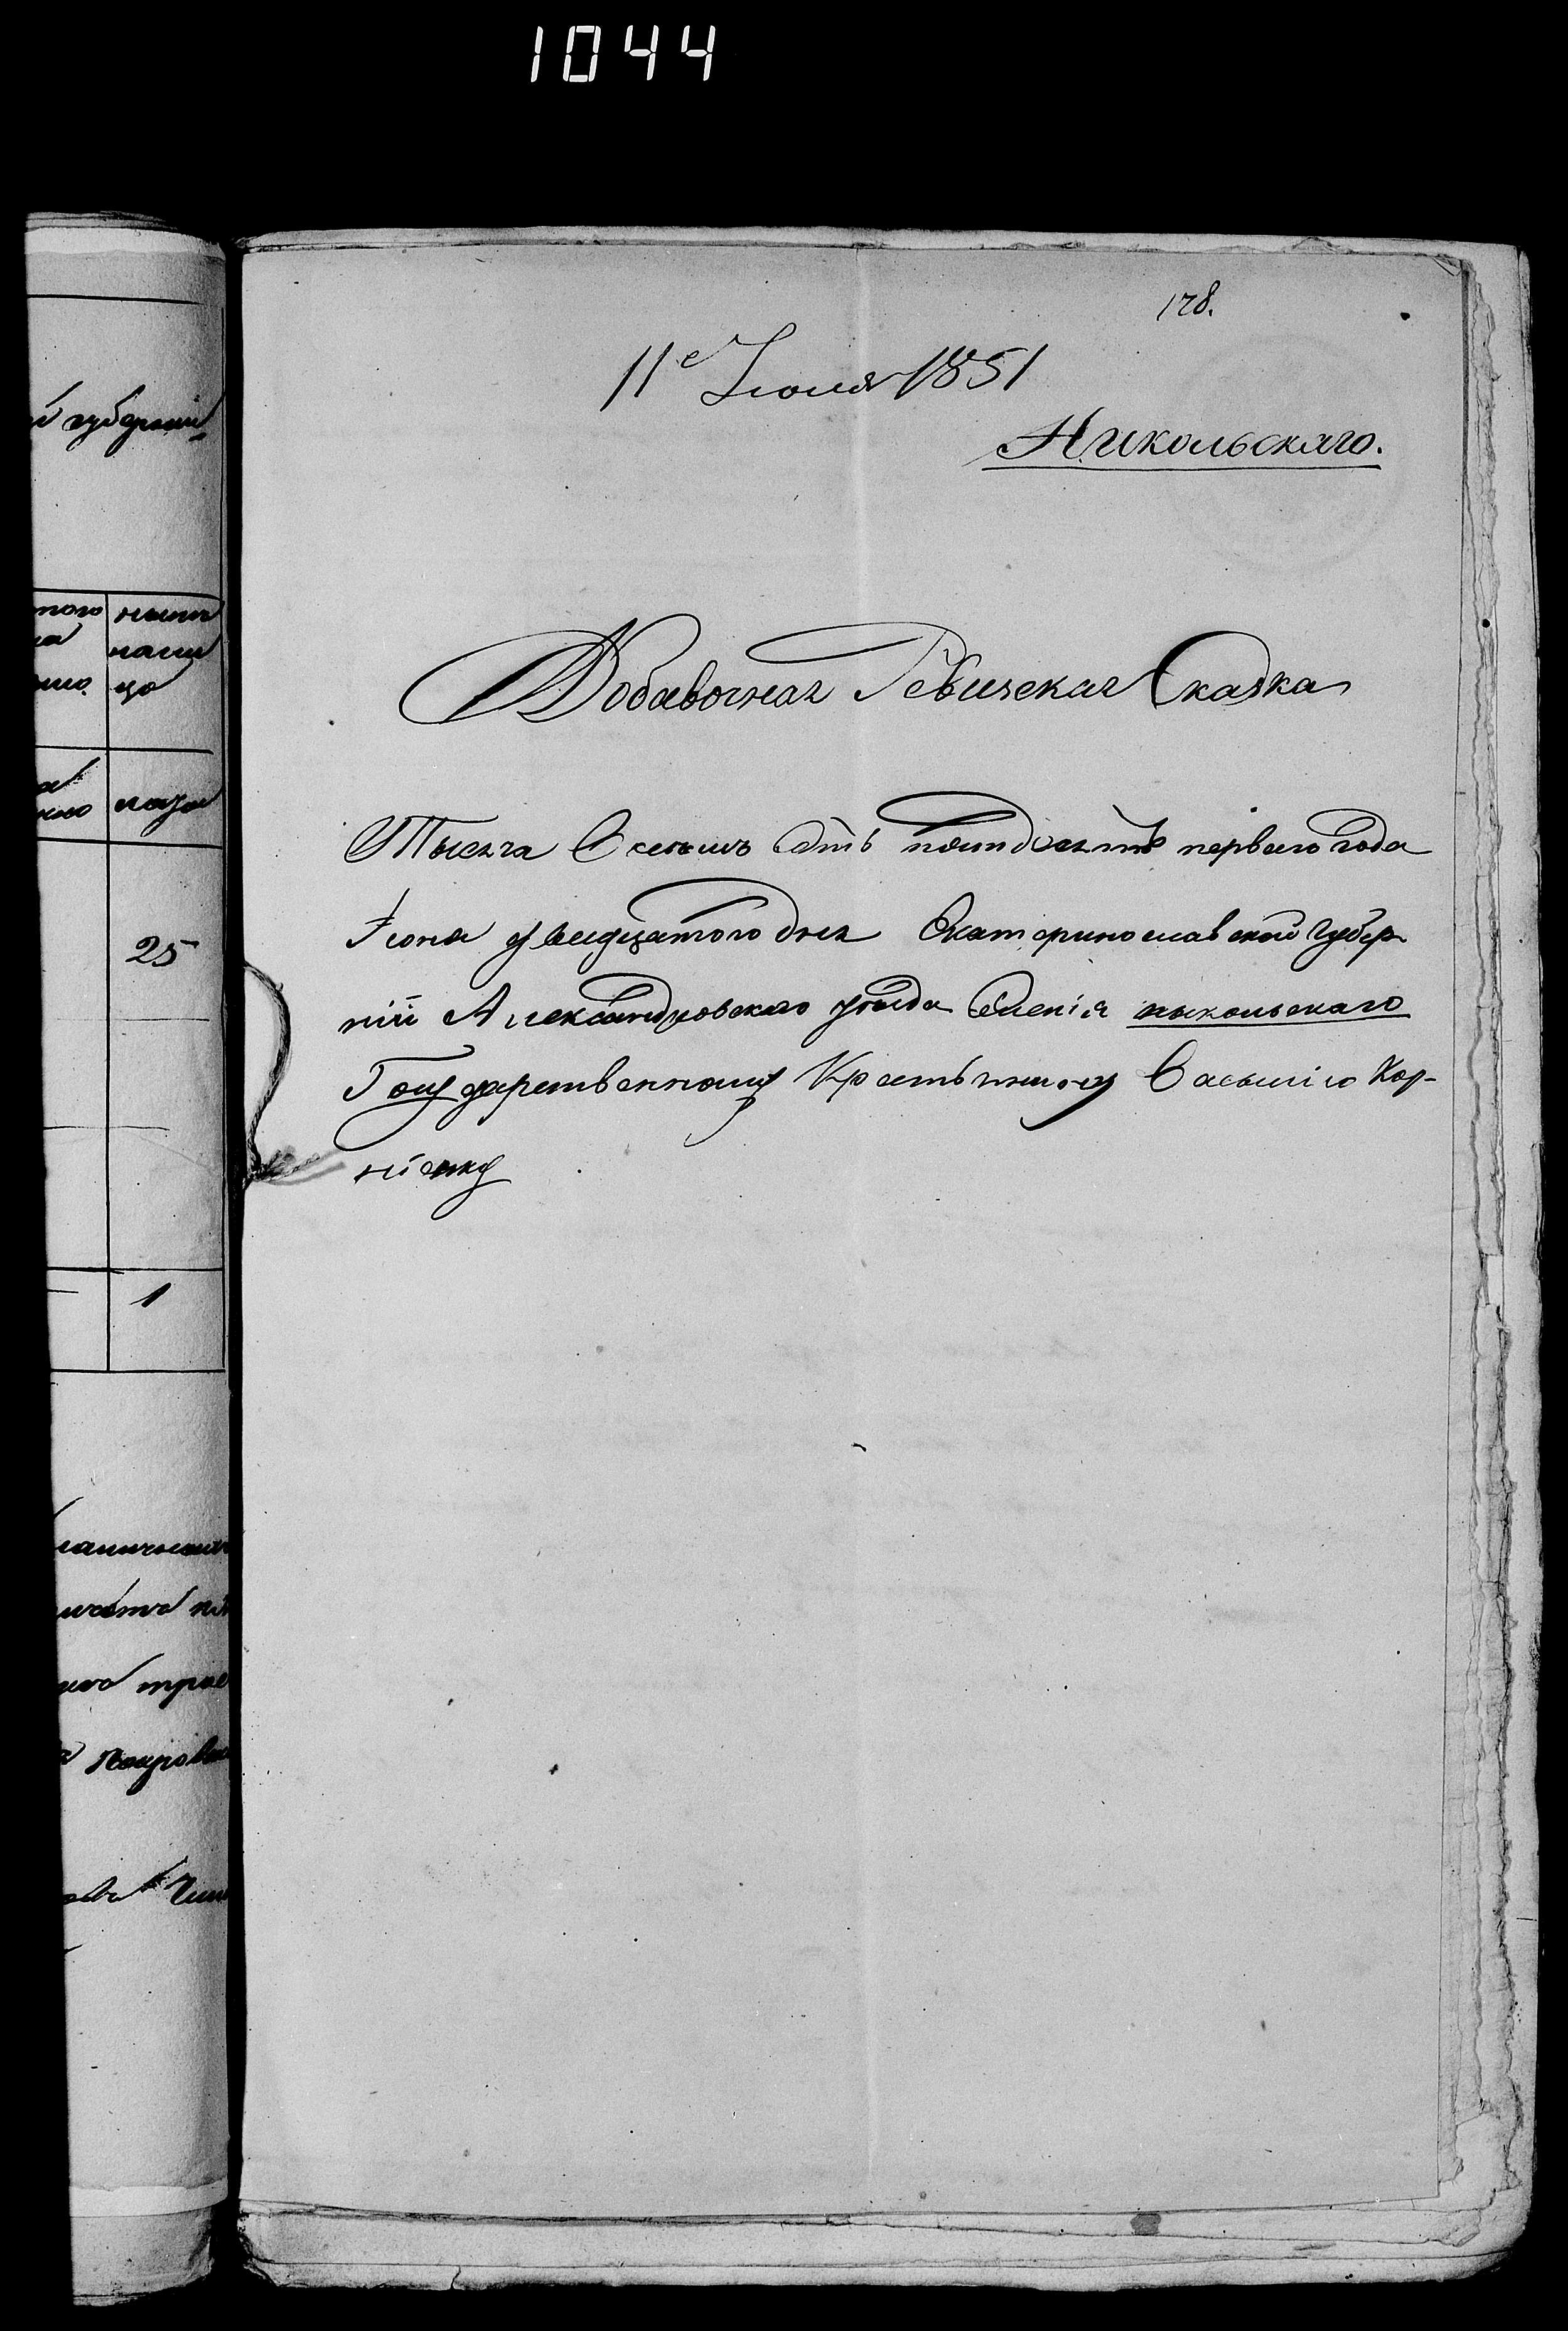 1044
178.
11е Іюля 1851
Никольскаго.
Добавочная Ревизская Сказка
Тысяча Восемь Сотъ пятдесятъ перваго года
Іюня двадцатого дня Екатеринославской Губер-
ніи Александровского уезда Селенія никольскаго
Государственному Крестьянину Василію Кор-
ніенку
й губерніи
того
на
лицо
ныне
на ли
цо
лета
25
1
Покровс